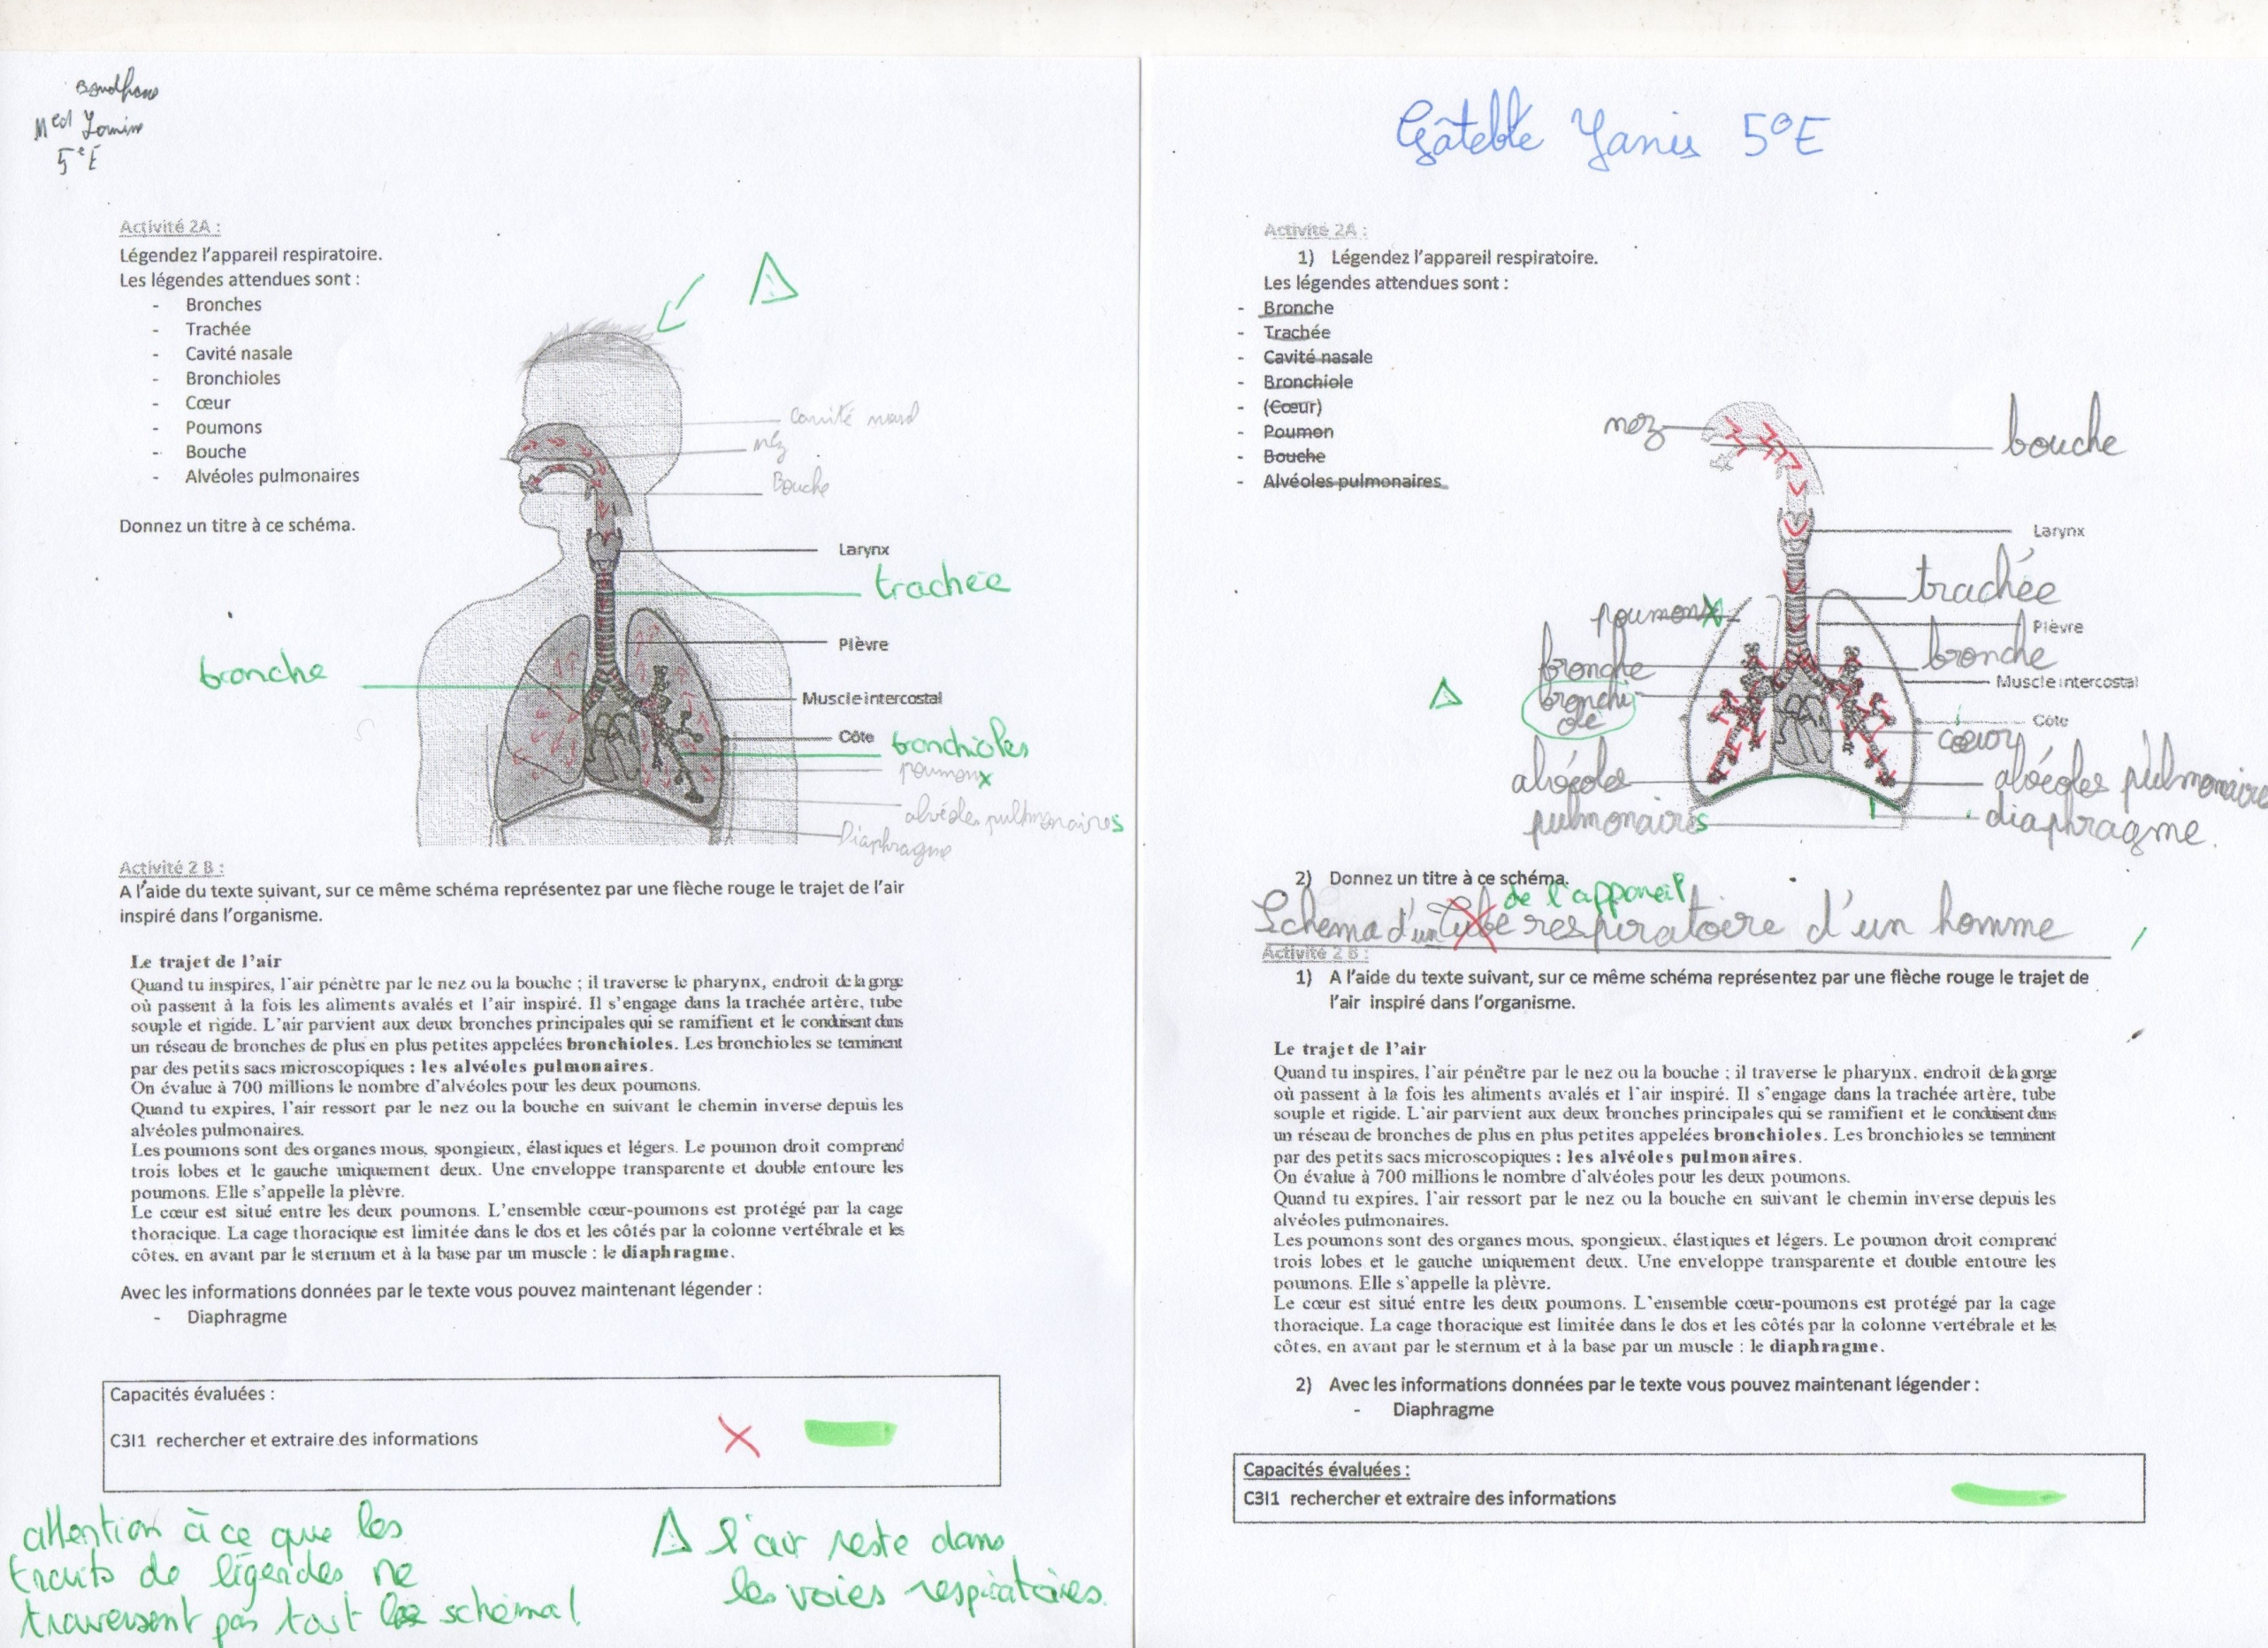 Med
5e E
Activité 2A :
Légendez l'appareil respiratoire.
Les légendes attendues sont :
- Bronches
- Trachée
- Cavité nasale
- Bronchioles
- Cœur
- Poumons
- Bouche
- Alvéoles pulmonaires
Donnez un titre à ce schéma.
nez
Bouche
Larynx
trachée
Plèvre
bronche
Muscle intercostal
Côte
bronchioles
poumonx
alvéoles pulmonaires
Diaphragme
Activité 2 B :
A l'aide du texte suivant, sur ce même schéma représentez par une flèche rouge le trajet de l'air
inspiré dans l'organisme.
Le trajet de l'air
Quand tu inspires, l'air pénètre par le nez ou la bouche ; il traverse le pharynx, endroit de la gorge
où passent à la fois les aliments avalés et l'air inspiré. Il s'engage dans la trachée artère, tube
souple et rigide. L'air parvient aux deux bronches principales qui se ramifient et le conduisent dans
un réseau de bronches de plus en plus petites appelées bronchioles. Les bronchioles se terminent
par des petits sacs microscopiques : les alvéoles pulmonaires.
On évalue à 700 millions le nombre d'alvéoles pour les deux poumons.
Quand tu expires, l'air ressort par le nez ou la bouche en suivant le chemin inverse depuis les
alvéoles pulmonaires.
Les poumons sont des organes mous, spongieux, élastiques et légers. Le poumon droit comprend
trois lobes et le gauche uniquement deux. Une enveloppe transparente et double entoure les
poumons. Elle s'appelle la plèvre.
Le cœur est situé entre les deux poumons. L'ensemble cœur-poumons est protégé par la cage
thoracique. La cage thoracique est limitée dans le dos et les côtés par la colonne vertébrale et les
côtes, en avant par le sternum et à la base par un muscle : le diaphragme.
Avec les informations données par le texte vous pouvez maintenant légender :
- Diaphragme
Capacités évaluées :
C3I1 rechercher et extraire des informations
attention à ce que les
traits de légendes ne
traversent pas tout le schéma!
l'air reste dans
les voies respiratoires.
Yanis 5°E
Activité 2A :
1) Légendez l'appareil respiratoire.
Les légendes attendues sont :
- Bronche
- Trachée
- Cavité nasale
- Bronchiole
- (Cœur)
- Poumon
- Bouche
- Alvéoles pulmonaires
nez
bouche
Larynx
trachée
poumonx
Plèvre
bronche
bronche
Muscle intercostal
bronchi
ole
Côte
cœur
alvéoles
pulmonaires
alvéoles pulmonaire
diaphragme.
2) Donnez un titre à ce schéma.
de l'appareil
Schema d'un tube respiratoire d'un homme
Activité 2 B :
1) A l'aide du texte suivant, sur ce même schéma représentez par une flèche rouge le trajet de
l'air inspiré dans l'organisme.
Le trajet de l'air
Quand tu inspires, l'air pénètre par le nez ou la bouche ; il traverse le pharynx, endroit de la gorge
où passent à la fois les aliments avalés et l'air inspiré. Il s'engage dans la trachée artère, tube
souple et rigide. L'air parvient aux deux bronches principales qui se ramifient et le conduisent dans
un réseau de bronches de plus en plus petites appelées bronchioles. Les bronchioles se terminent
par des petits sacs microscopiques : les alvéoles pulmonaires.
On évalue à 700 millions le nombre d'alvéoles pour les deux poumons.
Quand tu expires, l'air ressort par le nez ou la bouche en suivant le chemin inverse depuis les
alvéoles pulmonaires.
Les poumons sont des organes mous, spongieux, élastiques et légers. Le poumon droit comprend
trois lobes et le gauche uniquement deux. Une enveloppe transparente et double entoure les
poumons. Elle s'appelle la plèvre.
Le cœur est situé entre les deux poumons. L'ensemble cœur-poumons est protégé par la cage
thoracique. La cage thoracique est limitée dans le dos et les côtés par la colonne vertébrale et les
côtes, en avant par le sternum et à la base par un muscle : le diaphragme.
2) Avec les informations données par le texte vous pouvez maintenant légender :
- Diaphragme
Capacités évaluées :
C3I1 rechercher et extraire des informations